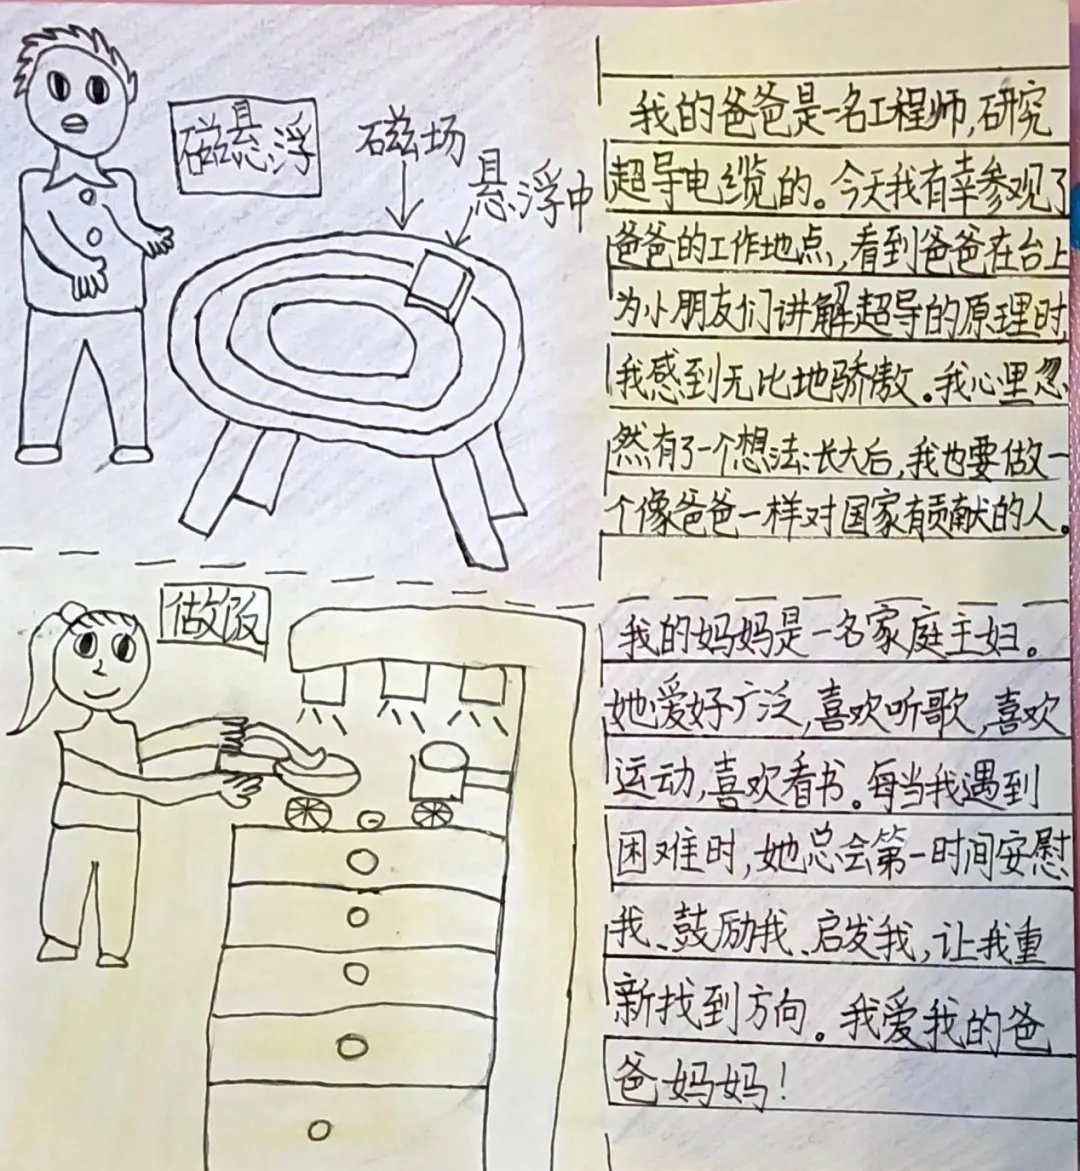 磁悬浮
磁场
悬浮中
我的爸爸是一名工程师,研究
超导电缆的。今天我有幸参观了
爸爸的工作地点,看到爸爸在台上
为小朋友们讲解超导的原理时,
我感到无比地骄傲。我心里忽
然有了一个想法:长大后,我也要做一
个像爸爸一样对国家有贡献的人。
做饭
我的妈妈是一名家庭主妇。
她爱好广泛,喜欢听歌,喜欢
运动,喜欢看书。每当我遇到
困难时,她总会第一时间安慰
我、鼓励我、启发我,让我重
新找到方向。我爱我的爸
爸妈妈!